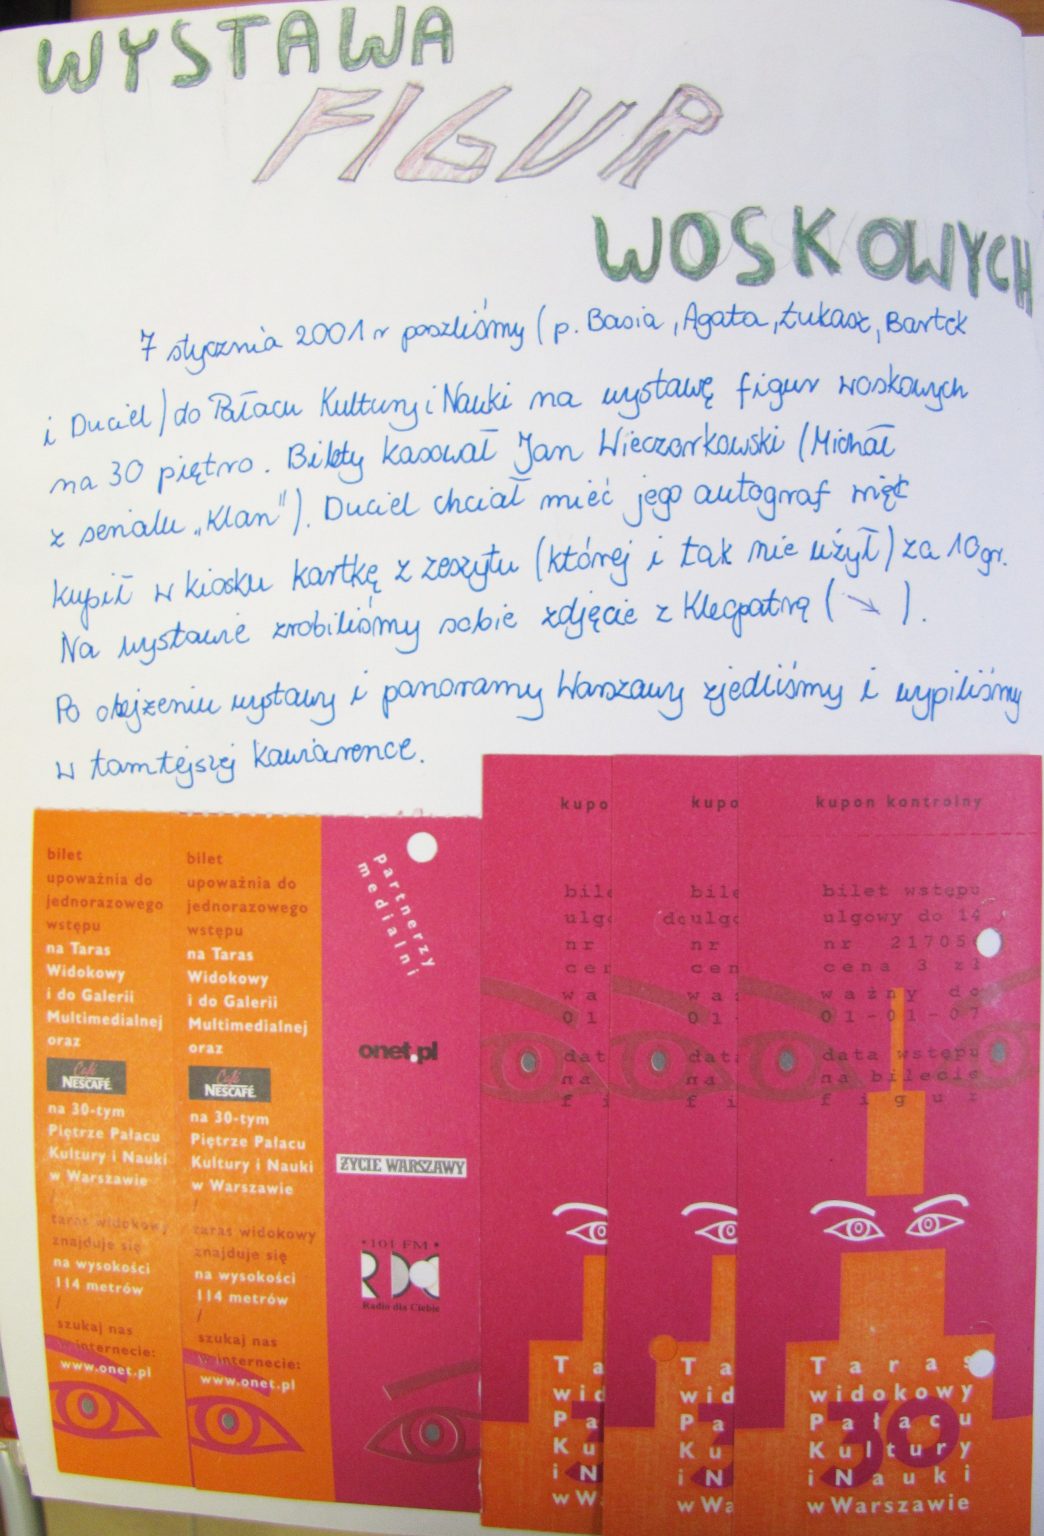 WYSTAWA
FIGUR
WOSKOWYCH
7 stycznia 2001 r poszliśmy (p. Basia, Agata, Łukasz, Bartek
i Duciel) do Pałacu Kultury i Nauki na wystawę figur woskowych
na 30 piętro. Bilety kasował Jan Wieczorkowski (Michał
z serialu „Klan"). Duciel chciał mieć jego autograf więc
kupił w kiosku kartkę z zeszytu (której i tak nie użył) za 10gr.
Na wystawie zrobiliśmy sobie zdjęcie z Kleopatrą (↘).
Po obejżeniu wystawy i panoramy Warszawy zjedliśmy i wypiliśmy
w tamtejszej kawiarence.
bilet
upoważnia do
jednorazowego
wstępu
na Taras
Widokowy
i do Galerii
Multimedialnej
oraz
Café
NESCAFÉ
na 30-tym
Piętrze Pałacu
Kultury i Nauki
w Warszawie
/
taras widokowy
znajduje się
na wysokości
114 metrów
/
szukaj nas
w internecie:
www.onet.pl
bilet
upoważnia do
jednorazowego
wstępu
na Taras
Widokowy
i do Galerii
Multimedialnej
oraz
Café
NESCAFÉ
na 30-tym
Piętrze Pałacu
Kultury i Nauki
w Warszawie
/
taras widokowy
znajduje się
na wysokości
114 metrów
/
szukaj nas
w internecie:
www.onet.pl
partnerzy
medialni
onet.pl
ŻYCIE WARSZAWY
101 FM
RDC
Radio dla Ciebie
kupo
bile
ulgo
nr
cen
wa
01
dat
na
fi
Ta
wid
Pa
Ku
i N
w Wa
kupo
bile
ulgo
nr
cen
wa
01-
dat
na
fi
Ta
wid
Pa
Ku
i N
w Wa
kupon kontrolny
bilet wstępu
ulgowy do 14
nr 21705
cena 3 zł
ważny do
01-01-07
data wstępu
na bilecie
figur
Taras
widokowy
Pałacu
Kultury
i Nauki
w Warszawie
30